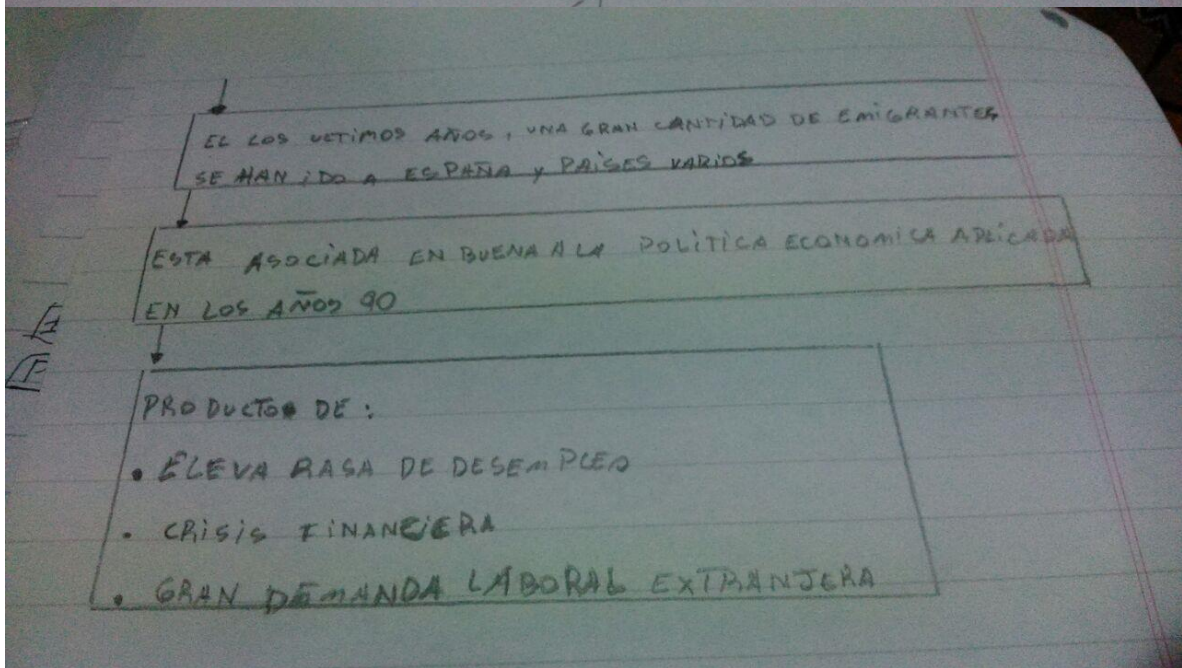 EL LOS ULTIMOS AÑOS, UNA GRAN CANTIDAD DE EMIGRANTES
SE HAN IDO A ESPAÑA Y PAISES VARIOS
ESTA ASOCIADA EN BUENA A LA POLITICA ECONOMICA APLICADA
EN LOS AÑOS 90
PRODUCTO DE:
• ELEVA RASA DE DESEMPLEO
• CRISIS FINANCIERA
• GRAN DEMANDA LABORAL EXTRANJERA